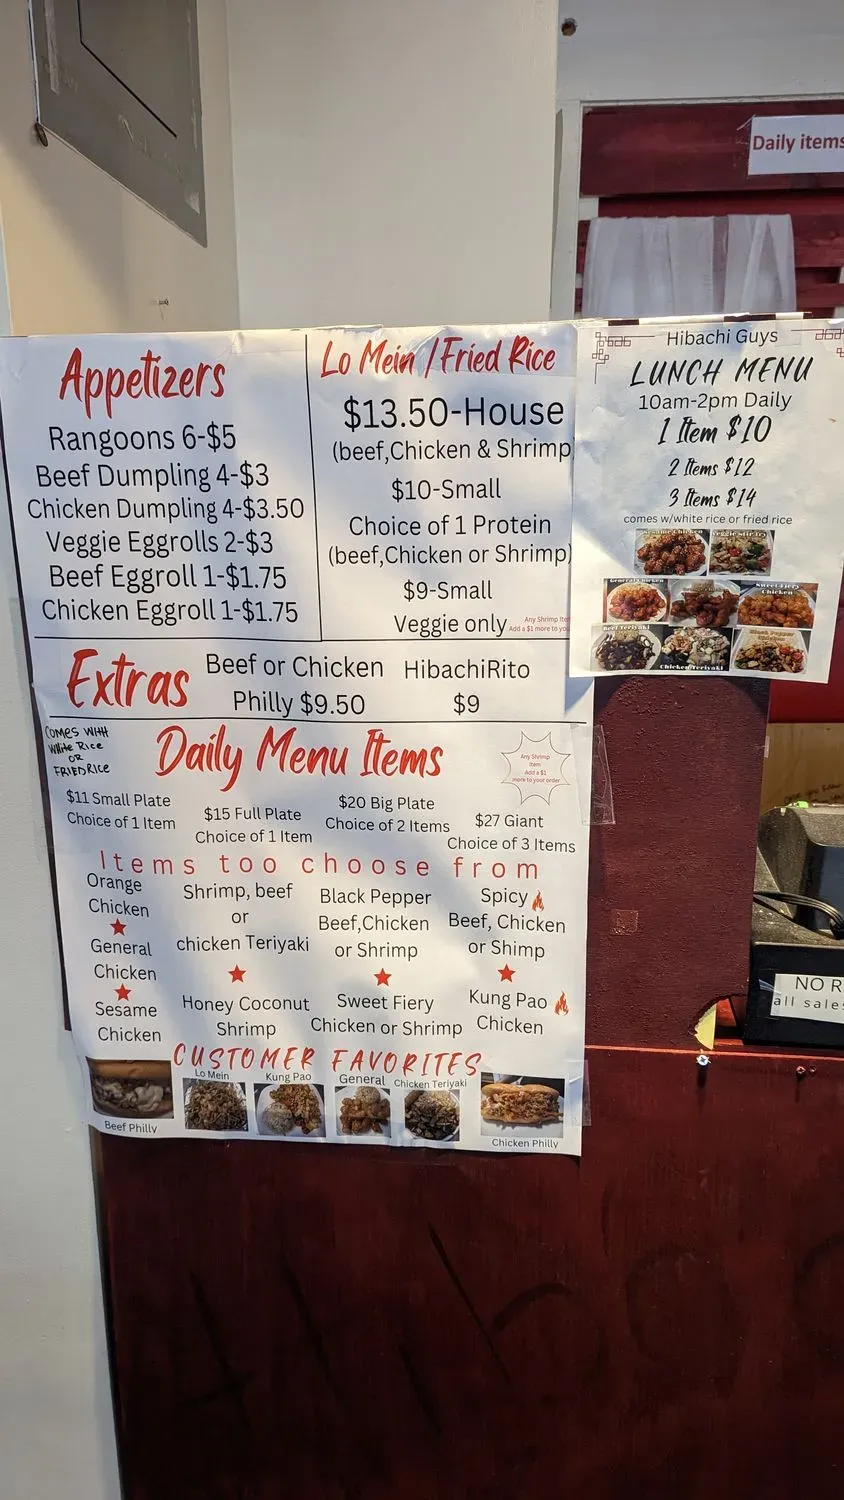 Daily items
Appetizers
Rangoons 6-$5
Beef Dumpling 4-$3
Chicken Dumpling 4-$3.50
Veggie Eggrolls 2-$3
Beef Eggroll 1-$1.75
Chicken Eggroll 1-$1.75
Lo Mein /Fried Rice
$13.50-House
(beef,Chicken & Shrimp)
$10-Small
Choice of 1 Protein
(beef,Chicken or Shrimp)
$9-Small
Veggie only
Any Shrimp Ite
Add a $1 more to yo
Hibachi Guys
LUNCH MENU
10am-2pm Daily
1 Item $10
2 Items $12
3 Items $14
comes w/white rice or fried rice
Sesame Chicken
Veggie Stir Fry
General Chicken
Sweet Fiery
Chicken
Beef Teriyaki
Chicken Teriyaki
Black Pepper
Extras
Beef or Chicken
Philly $9.50
HibachiRito
$9
COMES WITH
White Rice
OR
FRIED RICE
Daily Menu Items
Any Shrimp
Item
Add a $1
more to your order
$11 Small Plate
Choice of 1 Item
$15 Full Plate
Choice of 1 Item
$20 Big Plate
Choice of 2 Items
$27 Giant
Choice of 3 Items
Items too choose from
Orange
Chicken
General
Chicken
Sesame
Chicken
Shrimp, beef
or
chicken Teriyaki
Honey Coconut
Shrimp
Black Pepper
Beef,Chicken
or Shrimp
Sweet Fiery
Chicken or Shrimp
Spicy
Beef, Chicken
or Shimp
Kung Pao
Chicken
CUSTOMER FAVORITES
Beef Philly
Lo Mein
Kung Pao
General
Chicken Teriyaki
Chicken Philly
NO R
all sales